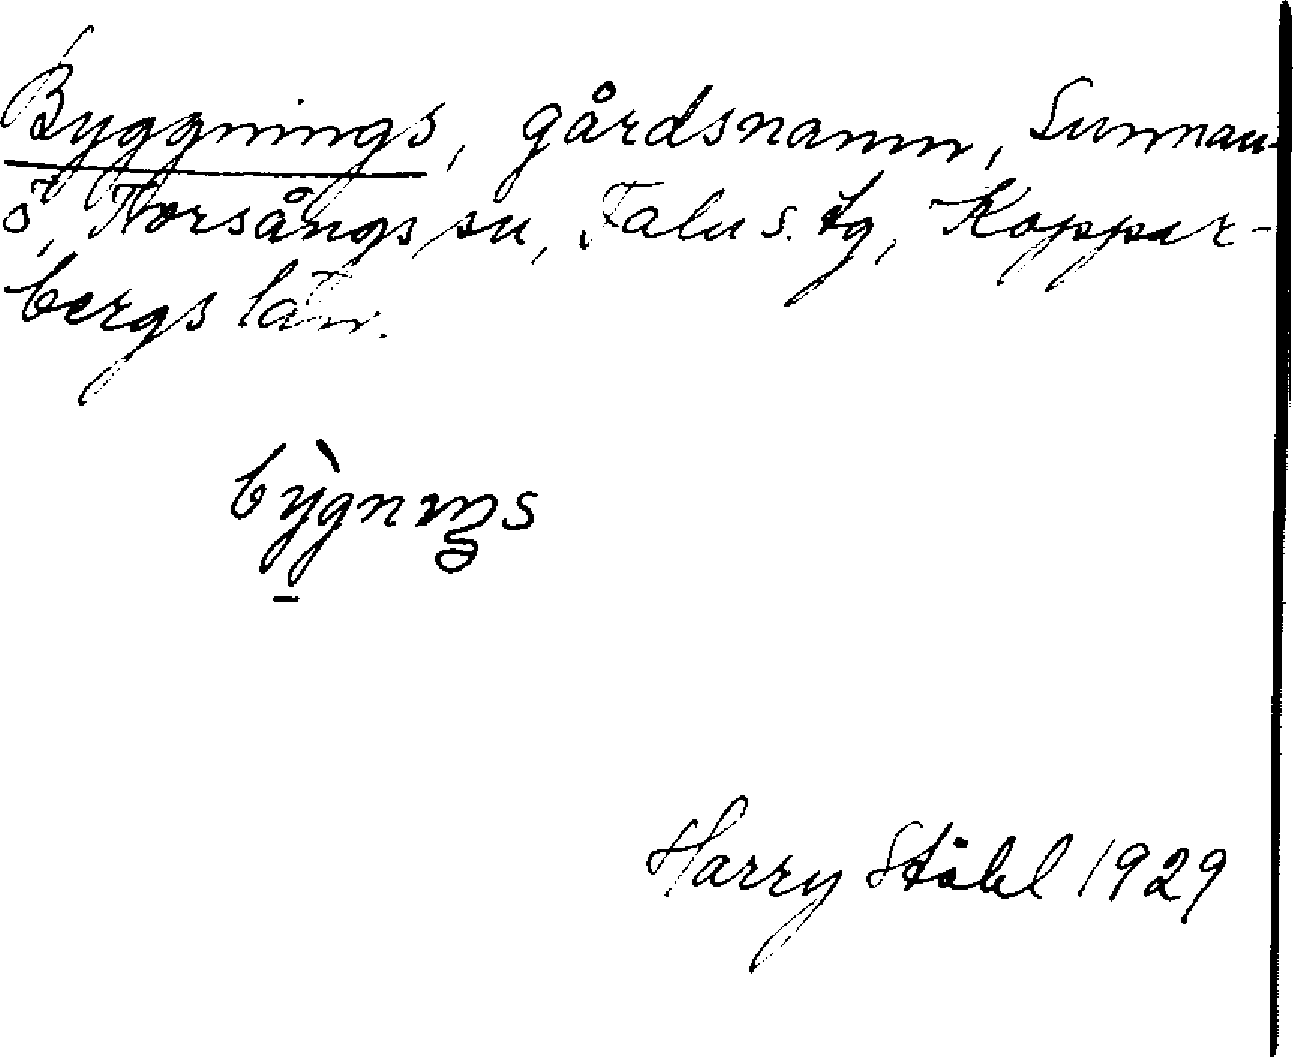 Byggnings, gårdsnamn, Sunnan-
ö, Torsångs sn, Falu s. tg, Koppar-
bergs län.
bỳgnıŋs
Harry Ståhl 1929